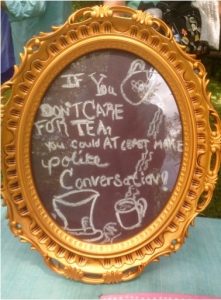 IF YOU
DON'T CARE
FOR TEA,
YOU COULD AT LEAST MAKE
polite
Conversation!